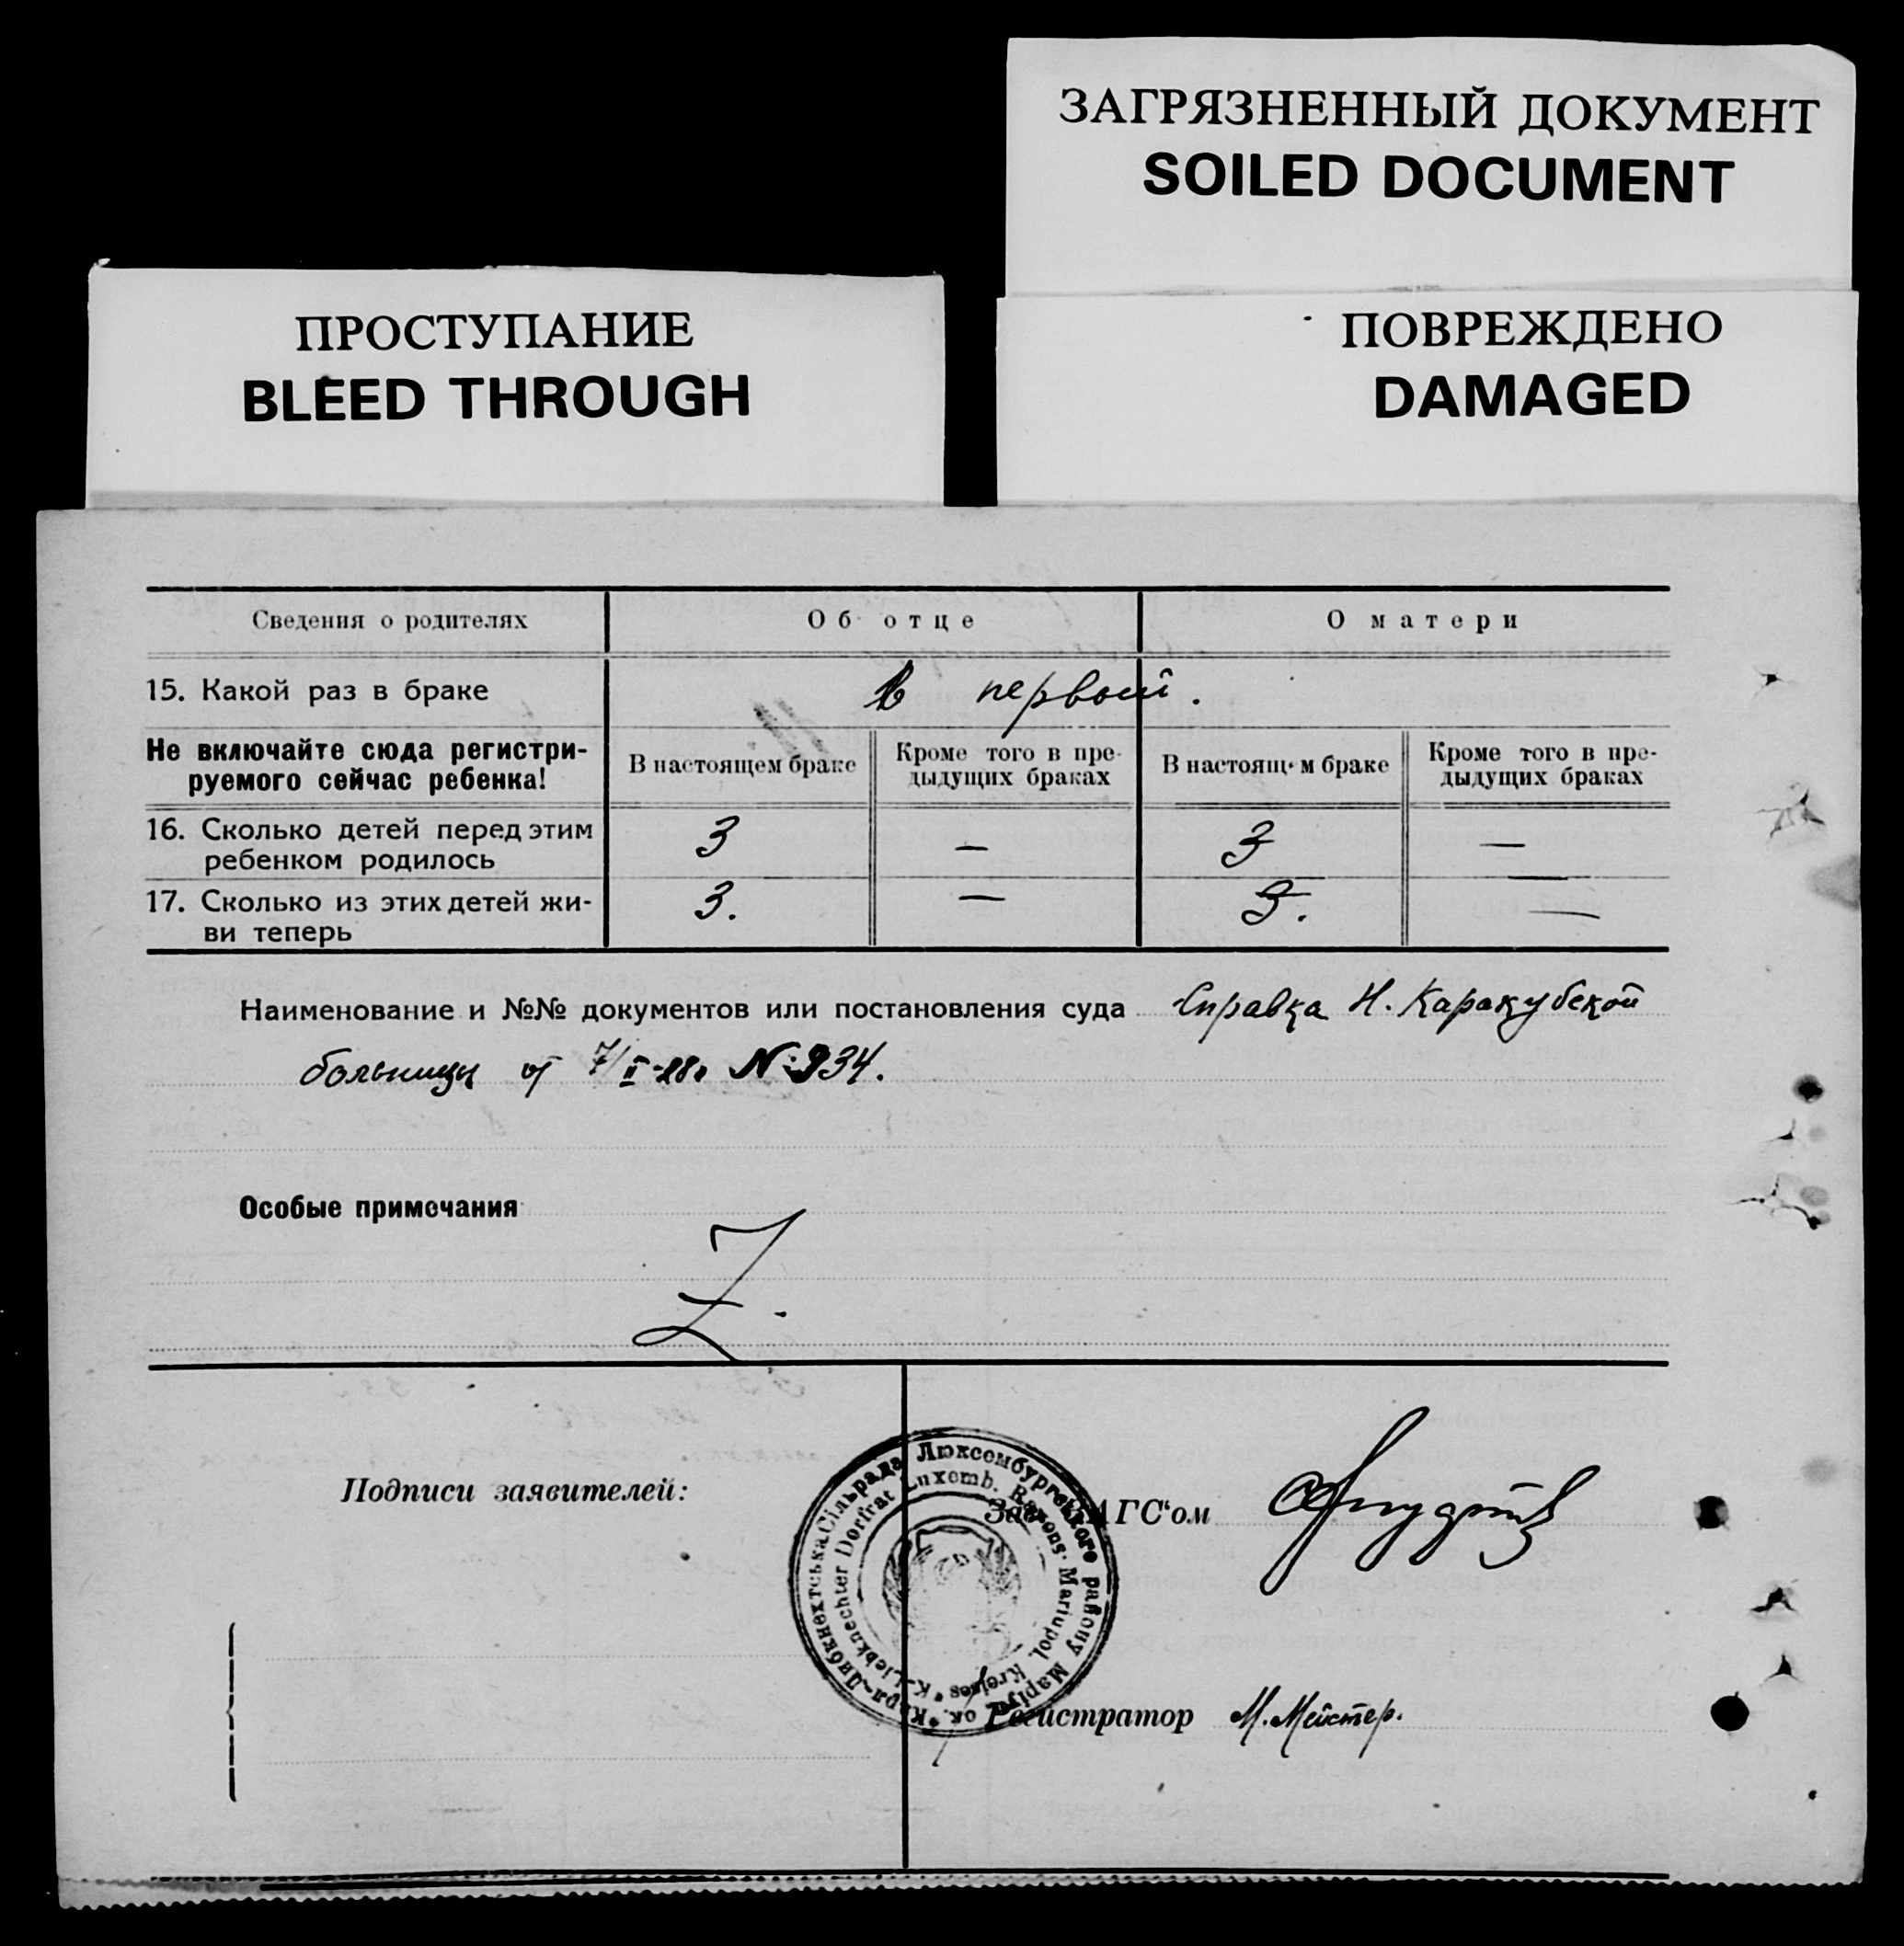 ЗАГРЯЗНЕННЫЙ ДОКУМЕНТ
SOILED DOCUMENT
ПРОСТУПАНИЕ
BLEED THROUGH
ПОВРЕЖДЕНО
DAMAGED
Сведения о родителях Об отце О матери
15. Какой раз в браке в первый.
Не включайте сюда регистри-
руемого сейчас ребенка!
В настоящем браке
Кроме того в пре-
дыдущих браках
В настоящ м браке
Кроме того в пре-
дыдущих браках
16. Сколько детей перед этим
ребенком родилось
3 — 3 —
17. Сколько из этих детей жи-
ви теперь
3. — 3. —
Наименование и №№ документов или постановления суда Справка Н. Каракубской
больницы от 7/II-28г N: 934.
Особые примечания
Z.
Подписи заявителей:
Зав. ЗАГС“ом
Карл-Лібкнехтська Сільрада Люксембургского району Маріуп. ок.
K-Liebknechter Dorfrat Luxemb. Rayons Mariupol. Kreises
Регистратор М. Мейстер.